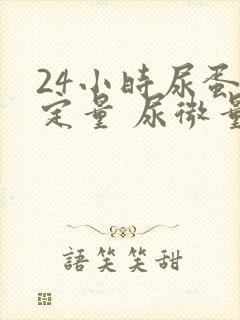 24小時尿蛋
定量 尿微量
語笑笑甜